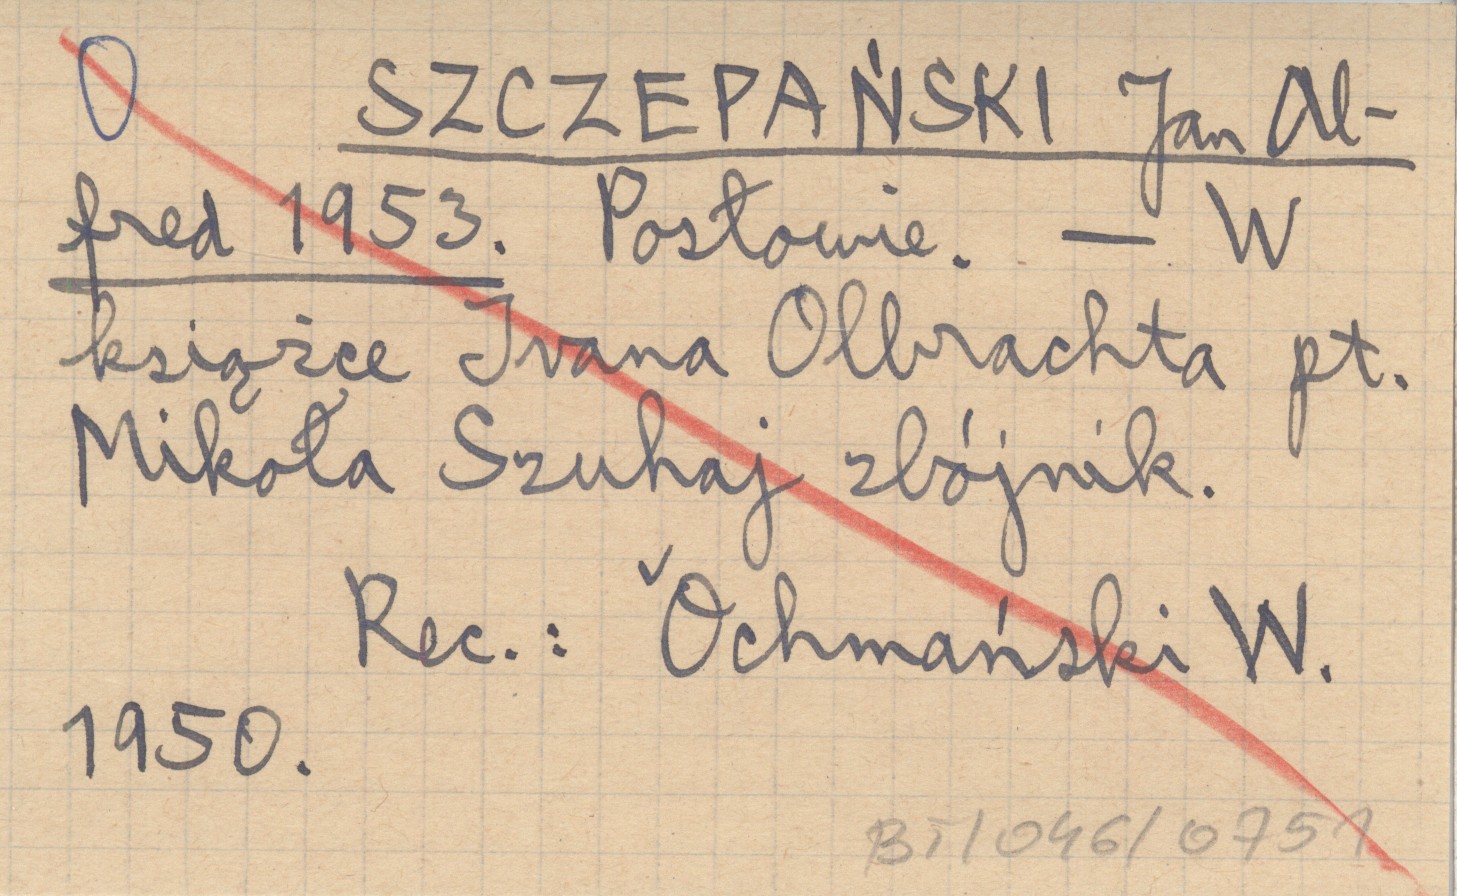 SZCZEPAŃSKI Jan Al-
fred 1953. Posłowie. — W
książce Ivana Olbrachta pt.
Mikoła Szuhaj zbójnik.
Rec.: Ochmański W.
1950.
BT/046/0751